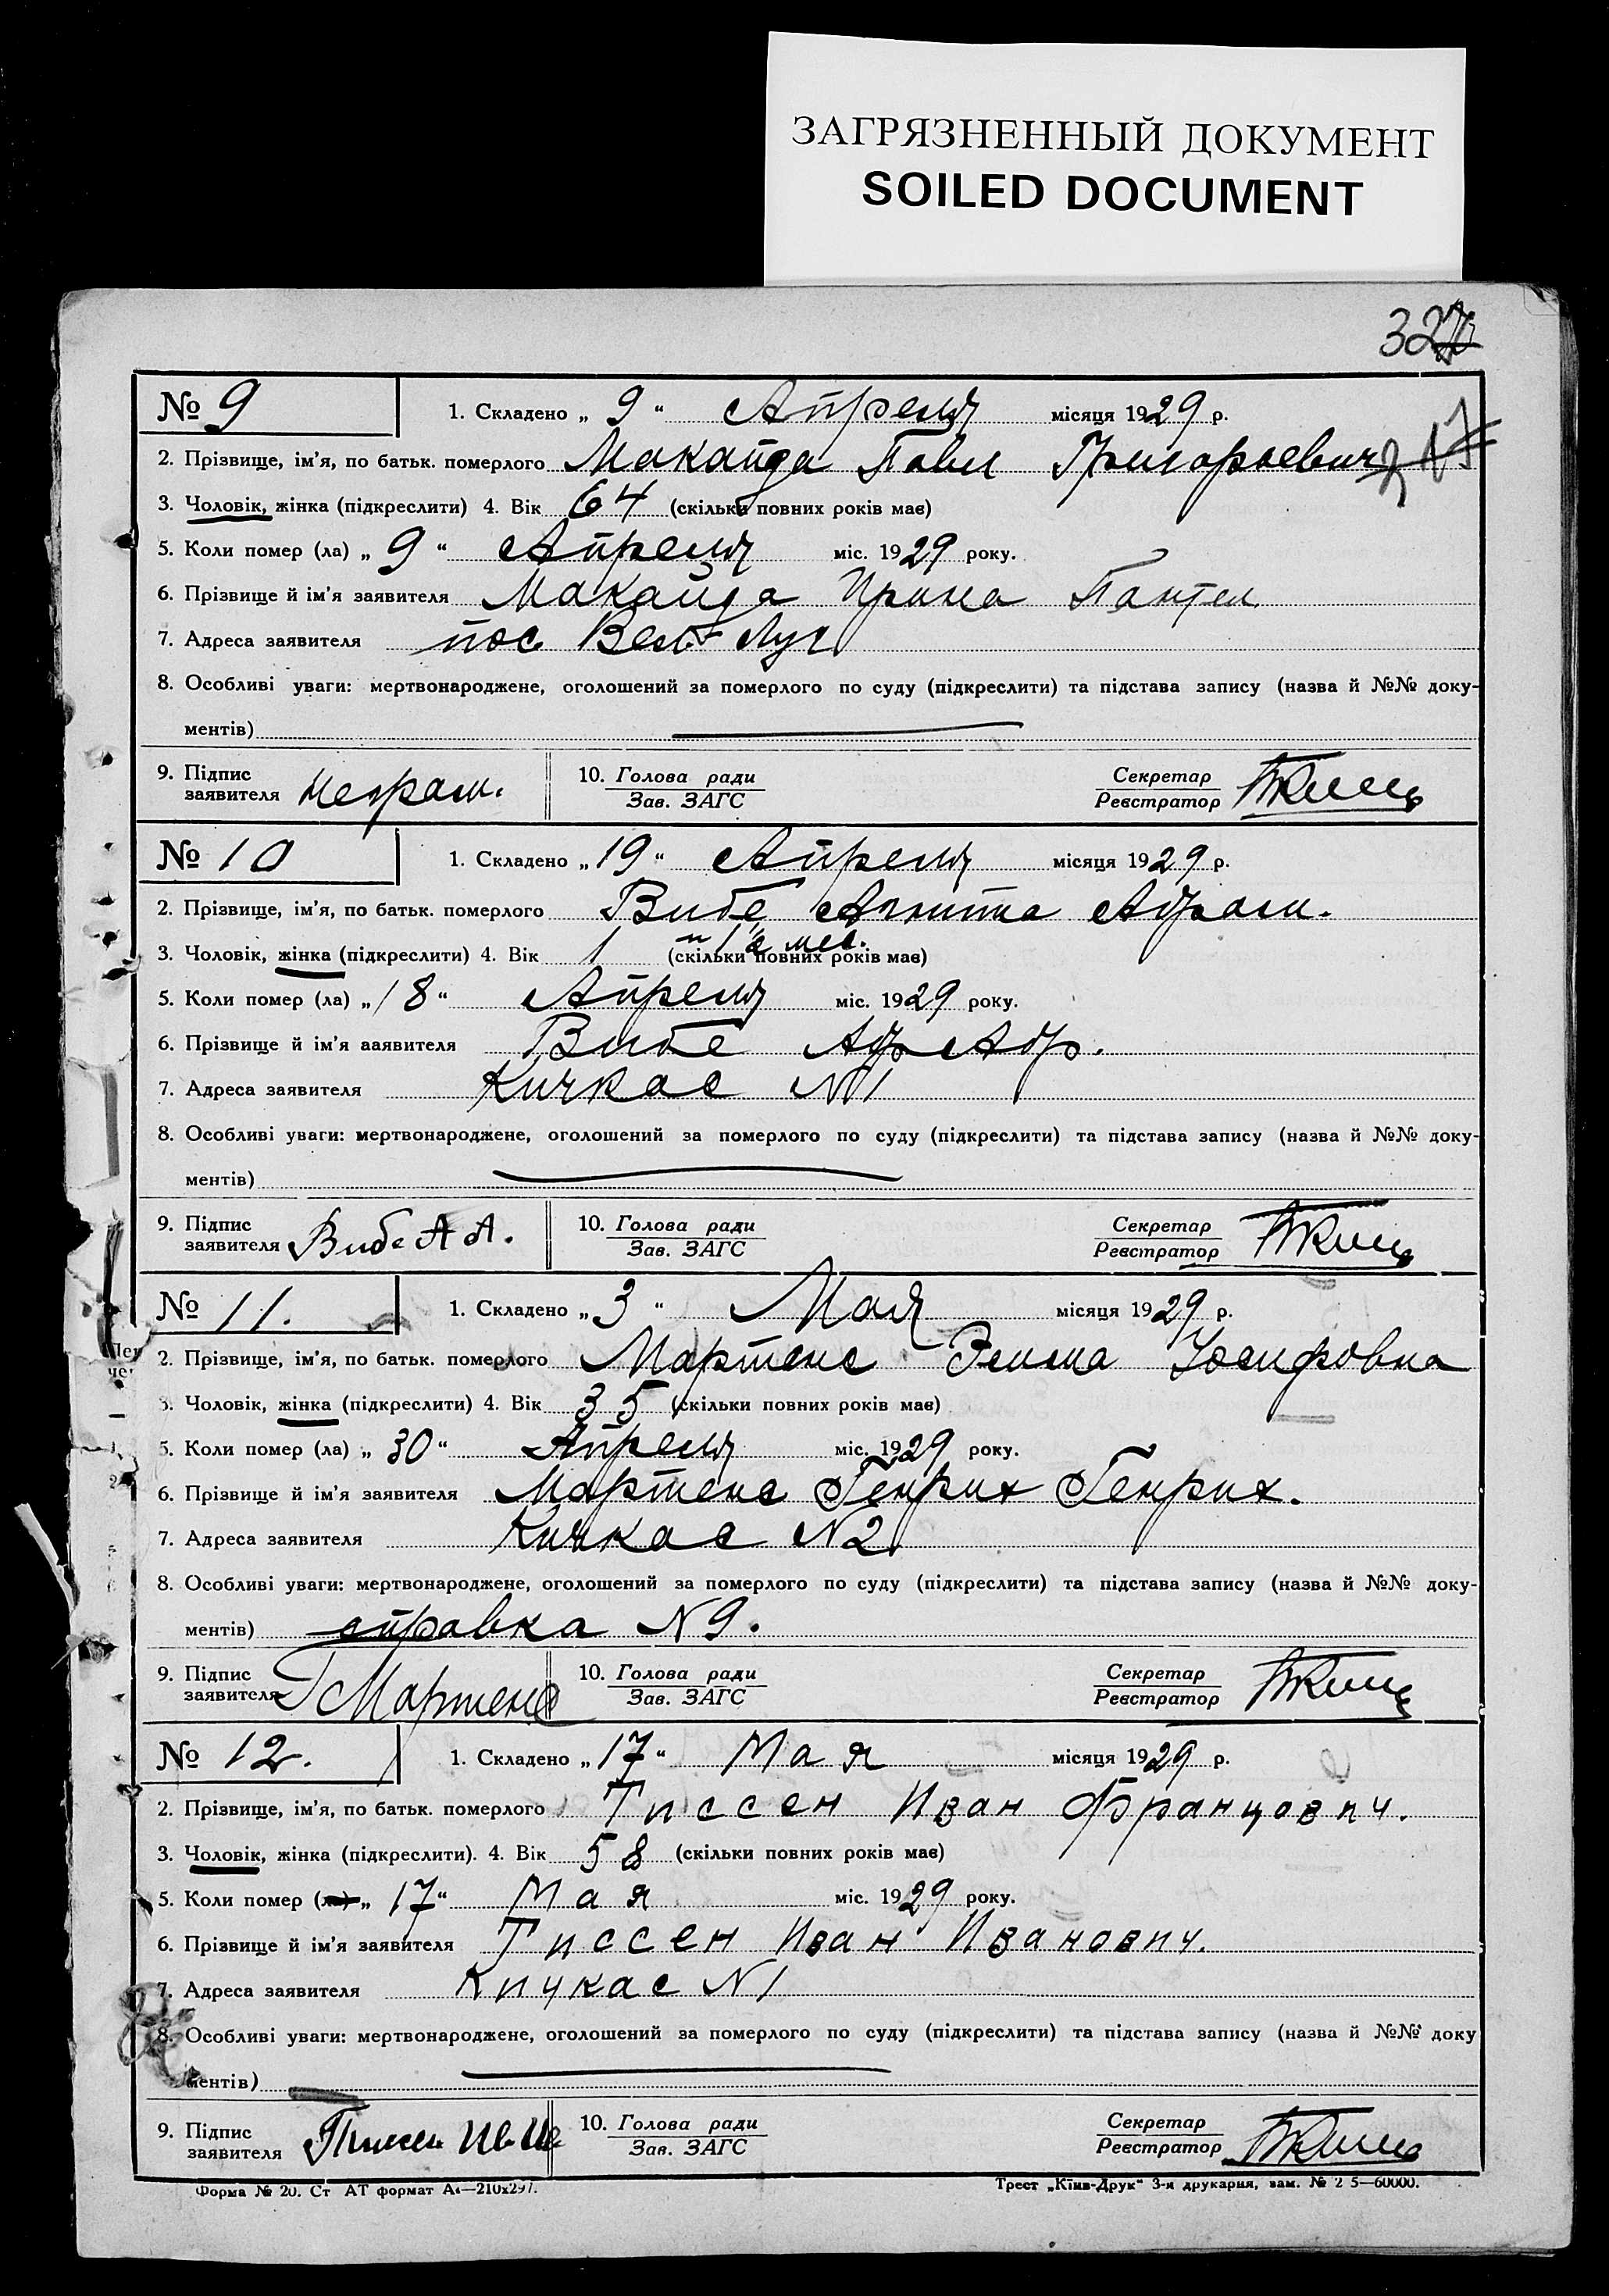 ЗАГРЯЗНЕННЫЙ ДОКУМЕНТ
SOILED DOCUMENT
№ 9
1. Складено „ 9 “ Апреля місяця 1929 р.
2. Прізвище, ім'я, по батьк. померлого Макайда Павел Григорьевич
3. Чоловік, жінка (підкреслити) 4. Вік 64 (скільки повних років має)
5. Коли помер (ла) „ 9 “ Апреля міс. 1929 року.
6. Прізвище й ім'я заявителя Макайда Ирина Пантел.
7. Адреса заявителя пос. Вел. Луг
8. Особливі уваги: мертвонароджене, оголошений за померлого по суду (підкреслити) та підстава запису (назва й №№ доку-
ментів)
9. Підпис заявителя неграм.
10. Голова ради
Зав. ЗАГС
Секретар
Реєстратор
№ 10
1. Складено „ 19 “ Апреля місяця 1929 р.
2. Прізвище, ім'я, по батьк. померлого Вибе Агнита Абрам.
3. Чоловік, жінка (підкреслити) 4. Вік 1 (скільки повних років має) мес.
5. Коли помер (ла) „ 18 “ Апреля міс. 1929 року.
6. Прізвище й ім'я заявителя Вибе Абр Абр.
7. Адреса заявителя Кичкас N1
8. Особливі уваги: мертвонароджене, оголошений за померлого по суду (підкреслити) та підстава запису (назва й №№ доку-
ментів)
9. Підпис заявителя Вибе А А.
10. Голова ради
Зав. ЗАГС
Секретар
Реєстратор
№ 11.
1. Складено „ 3 “ Мая місяця 1929 р.
2. Прізвище, ім'я, по батьк. померлого Мартенс Юсифовна
3. Чоловік, жінка (підкреслити) 4. Вік 35 (скільки повних років має)
5. Коли помер (ла) „ 30 “ Апреля міс. 1929 року.
6. Прізвище й ім'я заявителя Мартенс Генрих Генрих.
7. Адреса заявителя Кичкас N2
8. Особливі уваги: мертвонароджене, оголошений за померлого по суду (підкреслити) та підстава запису (назва й №№ доку-
ментів) справка N 9.
9. Підпис заявителя Г Мартенс
10. Голова ради
Зав. ЗАГС
Секретар
Реєстратор
№ 12.
1. Складено „ 17 “ Мая місяця 1929 р.
2. Прізвище, ім'я, по батьк. померлого Тиссен Иван Францович.
3. Чоловік, жінка (підкреслити). 4. Вік 58 (скільки повних років має)
5. Коли помер (ла) „ 17 “ Мая міс. 1929 року.
6. Прізвище й ім'я заявителя Тиссен Иван Иванович.
7. Адреса заявителя Кичкас N1
8. Особливі уваги: мертвонароджене, оголошений за померлого по суду (підкреслити) та підстава запису (назва й №№ доку
ментів)
9. Підпис заявителя Тиссен Ив Ив
10. Голова ради
Зав. ЗАГС
Секретар
Реєстратор
Форма № 20. Ст АТ формат А4—210x297.
Трест „Київ-Друк“ 3-я друкарня, зам. № 2 5—60000.